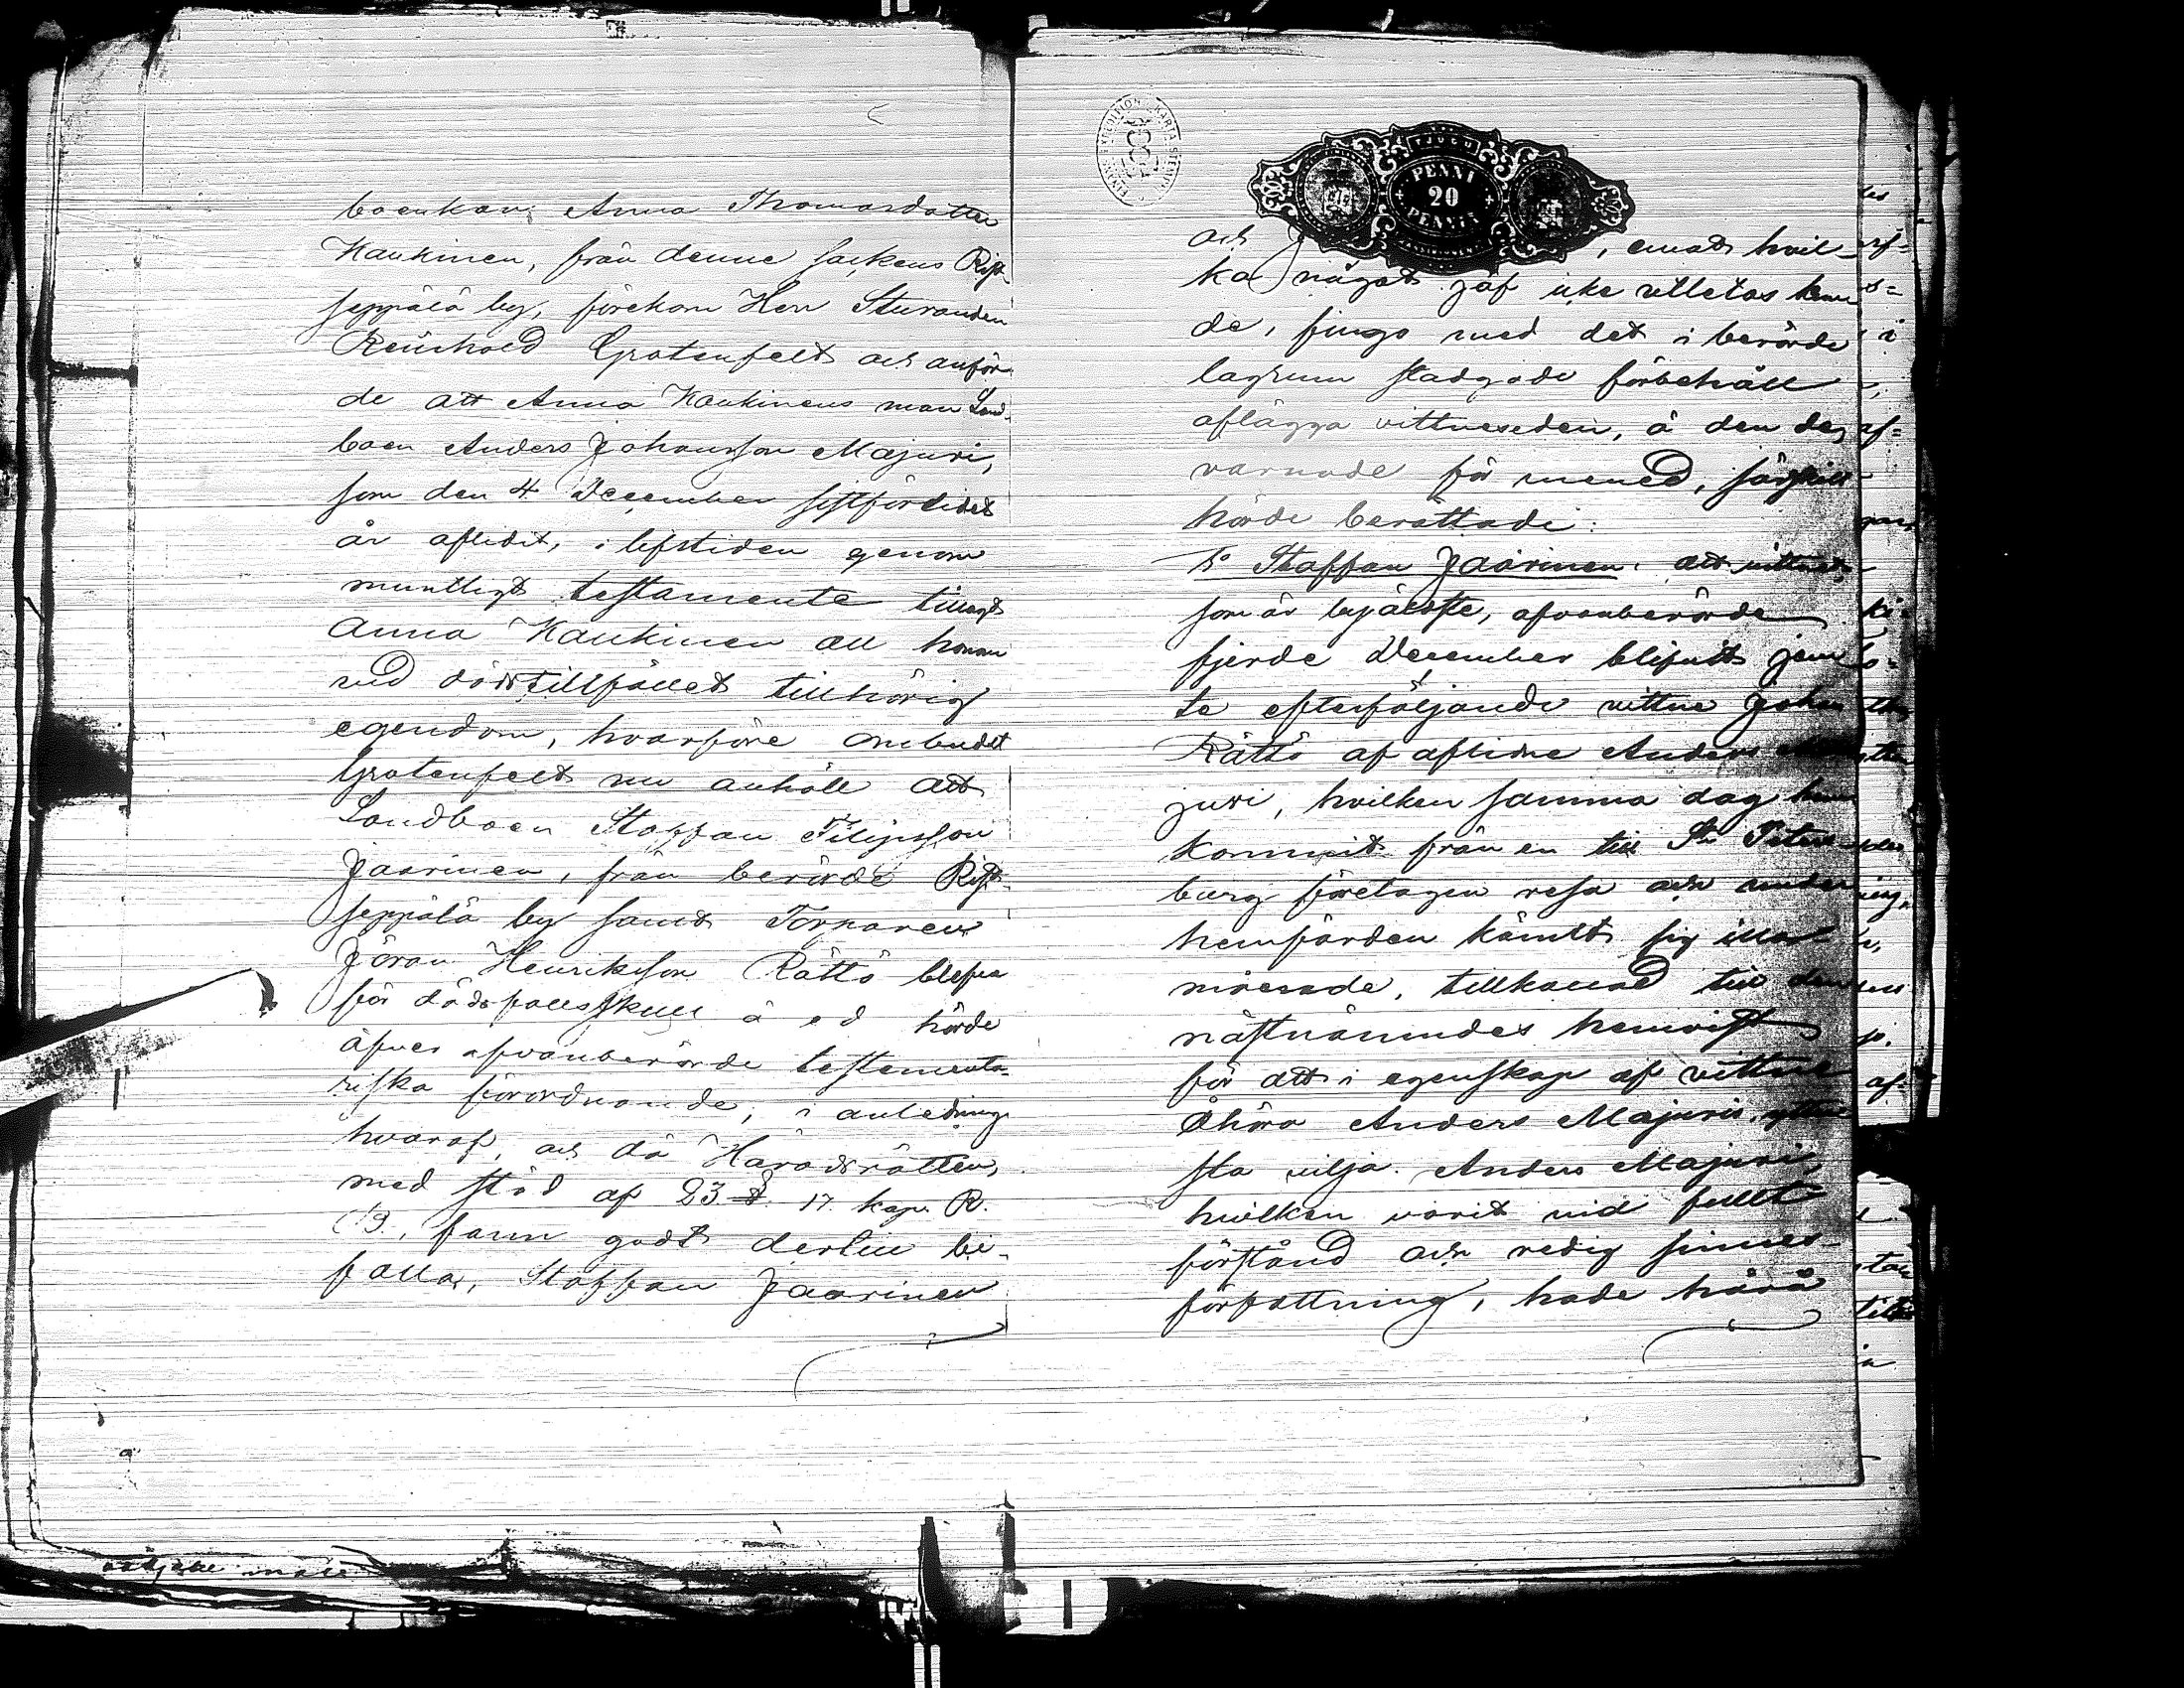 boenkan Anna Thomasdotter
Kaukinen, från denne sockens Rist-
seppälä by, förekom Herr Sturanden
Reinhold Grotenfelt och anför-
de att Anna Kaukinens man Land-
boen Anders Johansson Majuri,
som den 4 December sistförlidet
år aflidit, i lifstiden genom
muntligt testamente tillagt
Anna Kaukinen all honom
vid dödstillfället tillhörig
egendom, hvarföre ombudet
Grotenfelt nu anhöll att
Landboen Staffan Filipsson
Jaarinen, från berörde Rist-
seppälä by samt Torparen
Jöran Henriksson Rättö blefve
för dödsfallsskull å ed hörde
öfver ofvanberörde testamenta-
riska förordnande, i anledning
hvaraf, och då Häradsrätten,
med stöd af 23 § 17 kap. R.
B., fann godt dertill bi-
falla, Staffan Jaarinen
TJUGU
PENNI
20
PENNIÄ
och , emot hvil-
ka något jäf icke vettetas kun-
de, fingo med det i berörde
lagrum stadgade förbehåll
aflägga vittneseden, å den de,
varnade för mened, särskilt
hörde berättade:
1o Staffan Jaarinen: att vittnet,
som är byäldste, ofvanberörde
fjerde December blifvit jem-
te efterföljande vittne Johan
Rättö af aflidne Anders Ma-
juri, hvilken samma dag hem-
kommit från en till St Peters-
burg företagen resa och under
hemfärden känt sig illa-
mående, tillkallad till den
nästnämndes hemvist
för att i egenskap af vittne
åhöra Anders Majuris ytter-
sta vilja. Anders Majuri,
hvilken varit vid fullt
förstånd och redig sinnes-
författning, hade härå